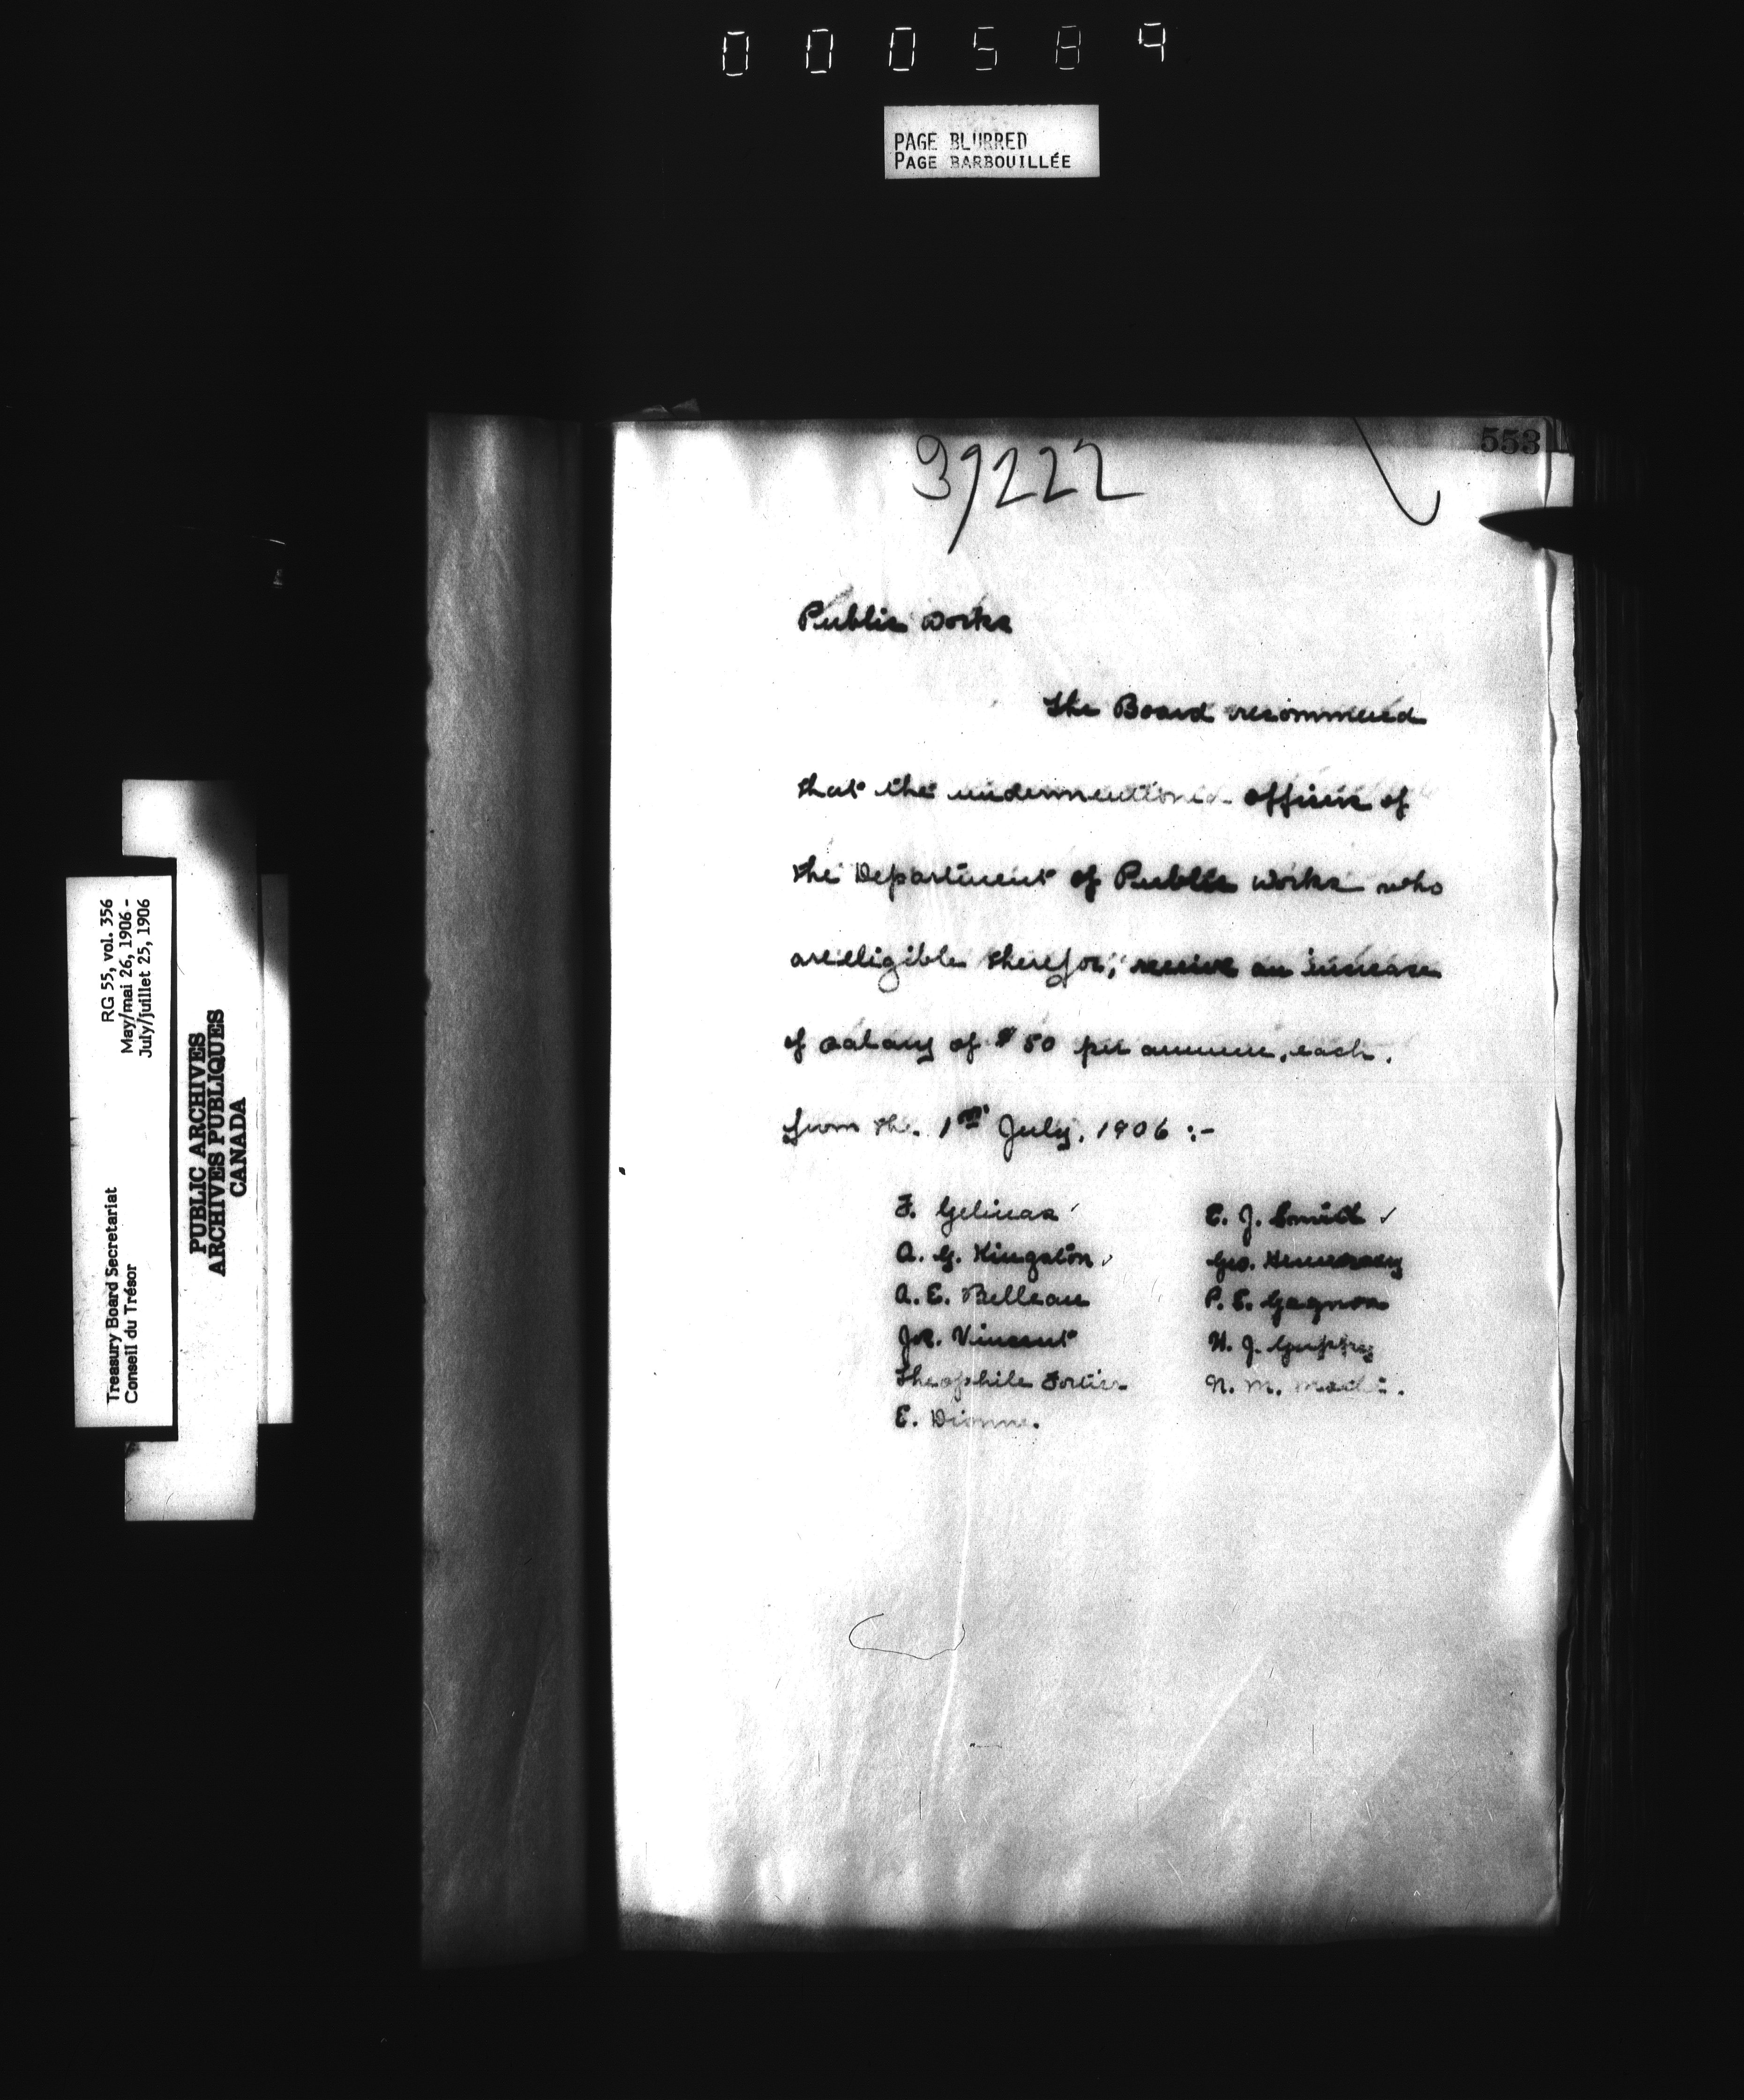 000584
PAGE BLURRED
PAGE BARBOUILLÉE
553
39222
Public Works
The Board recommend
that the undermentioned officers of
the Department of Public Works who
are eligible therefor, receive an increase
of salary of $50 per annum, each,
from the 1st July, 1906 :-
F. Gelinas
A. G. Kingston
A. E. Belleau
Jos. Vincent
Theophile Fortier
E. Dionne.
E. J. Smith
Geo. Hennessey
P. E. Gagnon
W. J. Guppy
N. M.
RG 55, vol. 356
May/mai 26, 1906 -
July/juillet 25, 1906
Treasury Board Secretariat
Conseil du Trésor
PUBLIC ARCHIVES
ARCHIVES PUBLIQUES
CANADA